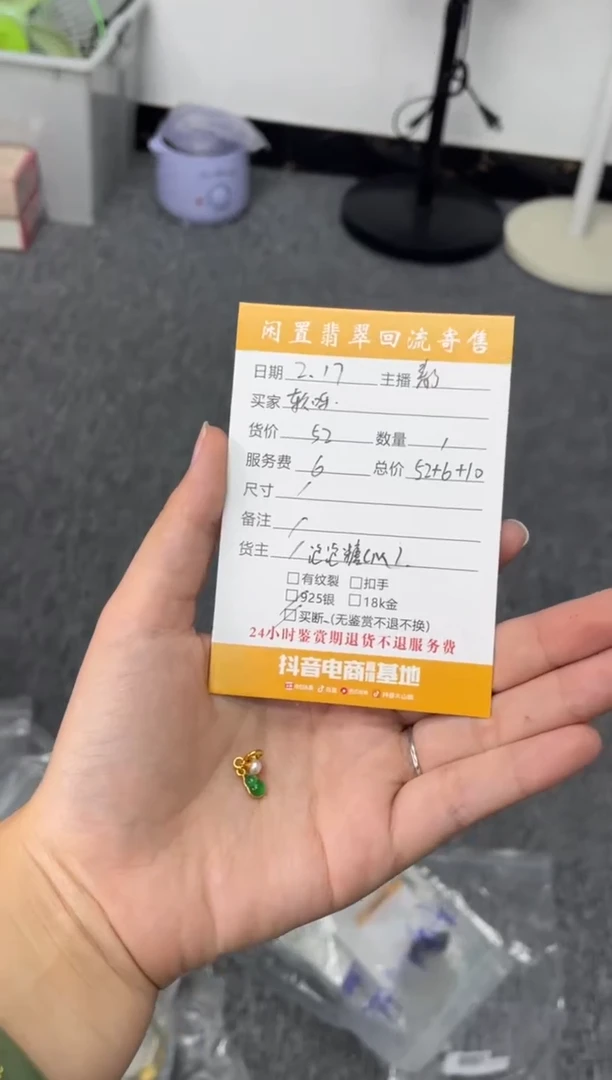 闲置翡翠回流寄售
日期 2.17 主播
买家 软呀.
货价 52 数量 1
服务费 6 总价 52+6+10
尺寸 /
备注 /
货主 / 泡泡糖
□有纹裂 □扣手
□925银 □18k金
□买断 (无鉴赏不退不换)
24小时鉴赏期退货不退服务费
抖音电商基地